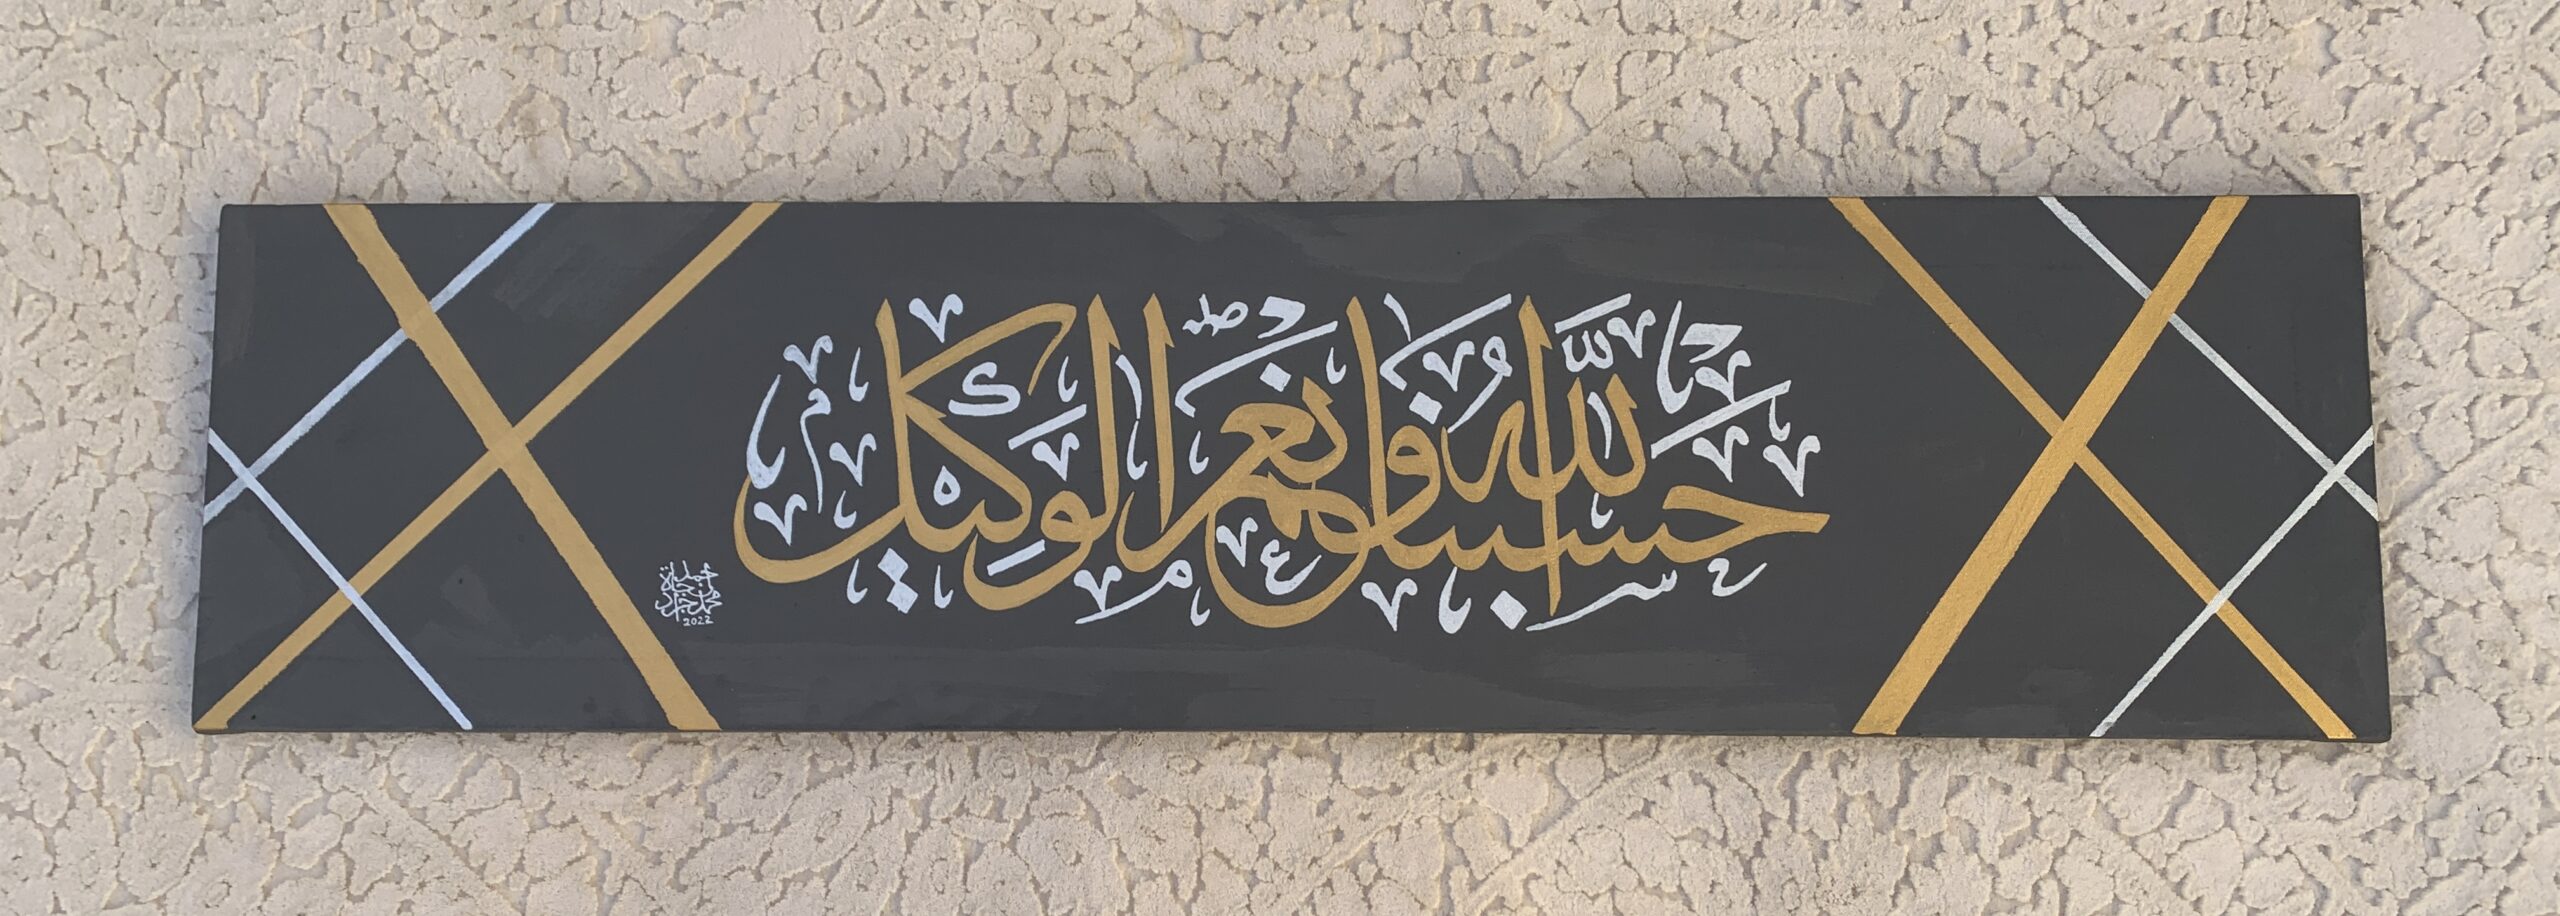 حسبنا الله ونعم الوكيل
2022